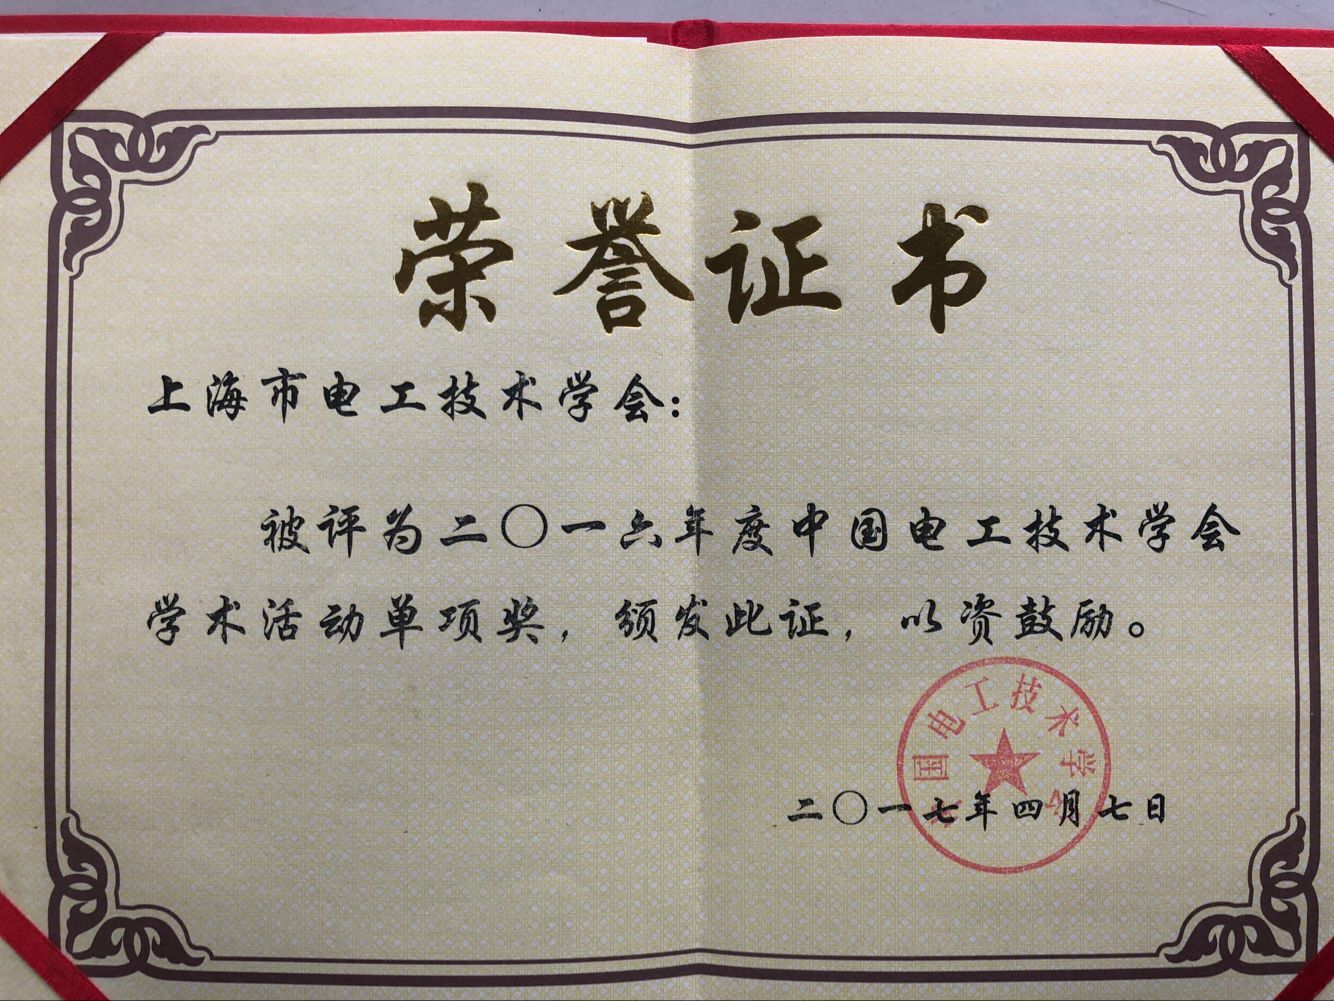 荣誉证书
上海市电工技术学会：
被评为二〇一六年度中国电工技术学会
学术活动单项奖，颁发此证，以资鼓励。
中国电工技术学会
二〇一七年四月七日